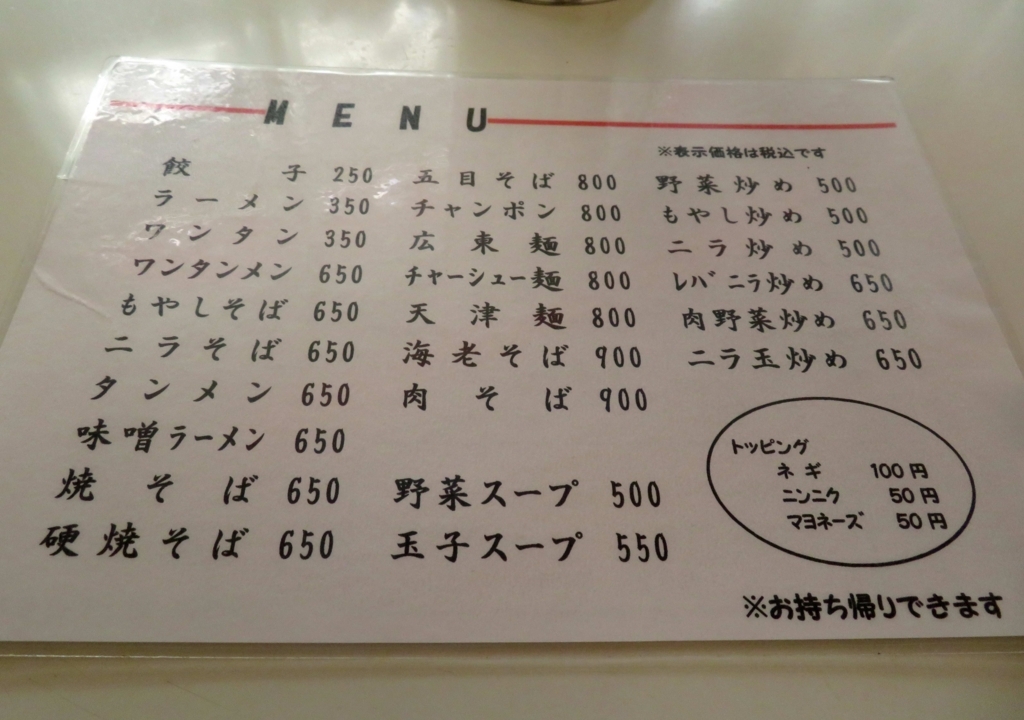 MENU
※表示価格は税込です
餃子 250
ラーメン 350
ワンタン 350
ワンタンメン 650
もやしそば 650
ニラそば 650
タンメン 650
味噌ラーメン 650
焼そば 650
硬焼そば 650
五目そば 800
チャンポン 800
広東麺 800
チャーシュー麺 800
天津麺 800
海老そば 900
肉そば 900
野菜スープ 500
玉子スープ 550
野菜炒め 500
もやし炒め 500
ニラ炒め 500
レバニラ炒め 650
肉野菜炒め 650
ニラ玉炒め 650
トッピング
ネギ 100円
ニンニク 50円
マヨネーズ 50円
※お持ち帰りできます